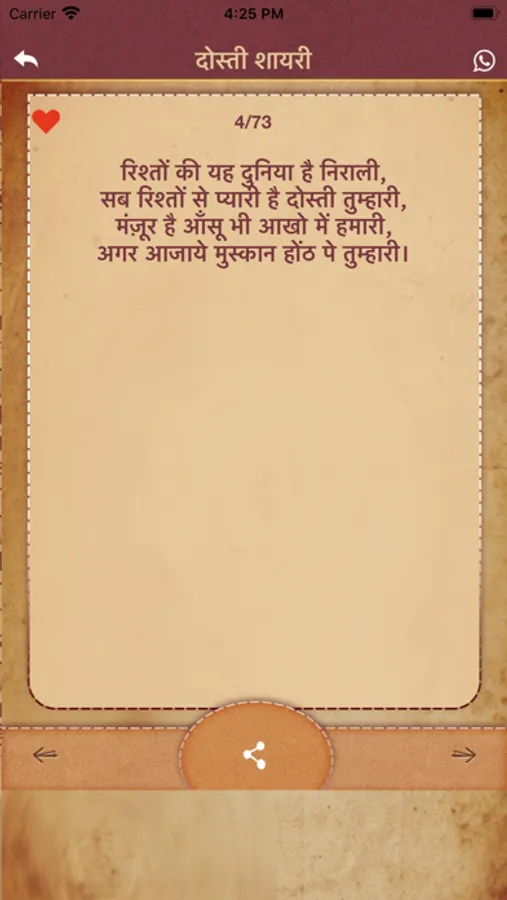 Carrier 4:25 PM
दोस्ती शायरी
4/73
रिश्तों की यह दुनिया है निराली,
सब रिश्तों से प्यारी है दोस्ती तुम्हारी,
मंज़ूर है आँसू भी आखो में हमारी,
अगर आजाये मुस्कान होंठ पे तुम्हारी।